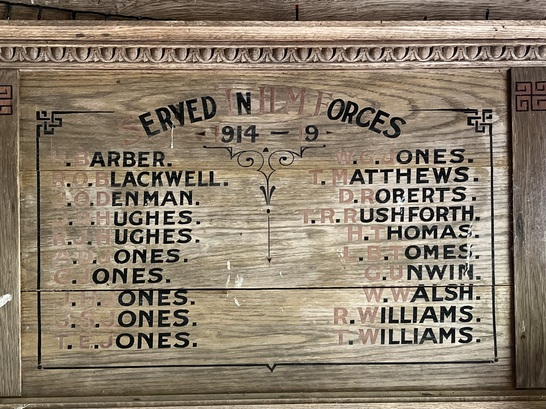 SERVED IN H.M. FORCES
1914 — 19
BARBER.
BLACKWELL.
DENMAN.
HUGHES.
HUGHES.
JONES.
JONES.
JONES.
JONES.
T.E. JONES.
JONES.
T. MATTHEWS.
D. ROBERTS.
T.R. RUSHFORTH.
H. THOMAS.
TOMES.
G. UNWIN.
W. WALSH.
R. WILLIAMS.
T. WILLIAMS.